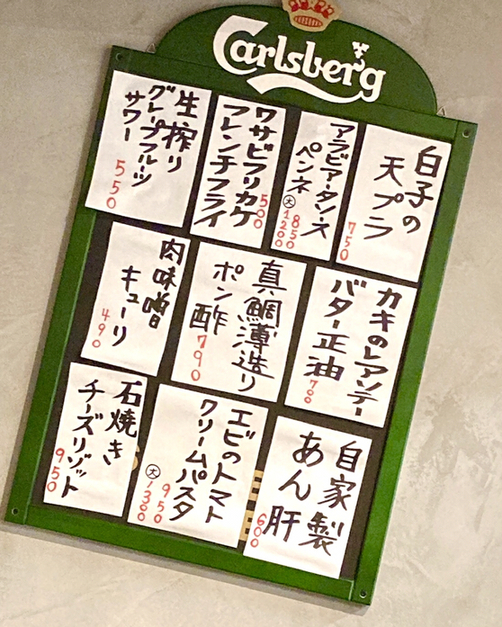 Carlsberg
白子の
天プラ
750
アラビアータソース
ペンネ
850
大1200
ワサビフリカケ
フレンチフライ
500
生搾り
グレープフルーツ
サワー
550
カキのレアソテー
バター正油
780
真鯛薄造り
ポン酢
790
肉味噌
キューリ
490
自家製
あん肝
600
エビのトマト
クリームパスタ
950
大1300
石焼き
チーズリゾット
950